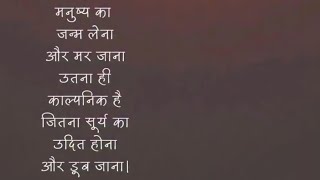 मनुष्य का
जन्म लेना
और मर जाना
उतना ही
काल्पनिक है
जितना सूर्य का
उदित होना
और डूब जाना।